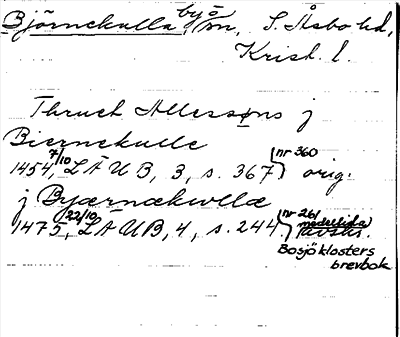 Björnekulla by ö sn, S. Åsbo hd,
Krist. l.
Thruch Allessøns j
Biernekulle
1454 7/10, LÄUB, 3, s. 367) nr 360 orig.
j Byærnækwllæ
1475 22/10, LÄUB, 4, s. 244) nr 261 medeltida
Bosjöklosters
brevbok